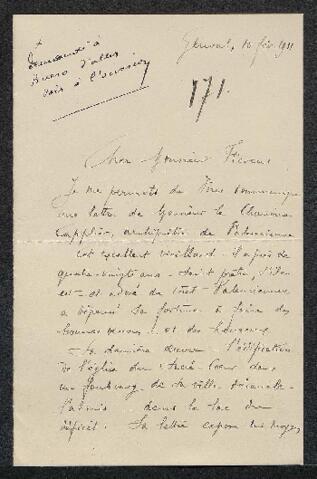 Demandé à
Buero d'aller
voir à l'occasion
Genval, 10 fév. 1911
171.
Cher Monsieur Fierens
Je me permets de vous communiquer
une lettre de Monsieur le Chanoine
Cappliez, archiprêtre de Valenciennes
Cet excellent vieillard - il a près de
quatre-vingts ans - saint prêtre s'il en
est - et adoré de tout Valenciennes
a dépensé sa fortune à faire des
bonnes œuvres et des heureux
- Sa dernière œuvre l'édification
de l'église du Sacré Cœur dans
un faubourg de sa ville
l'a mis dans le lac du
déficit. Sa lettre expose les moyens